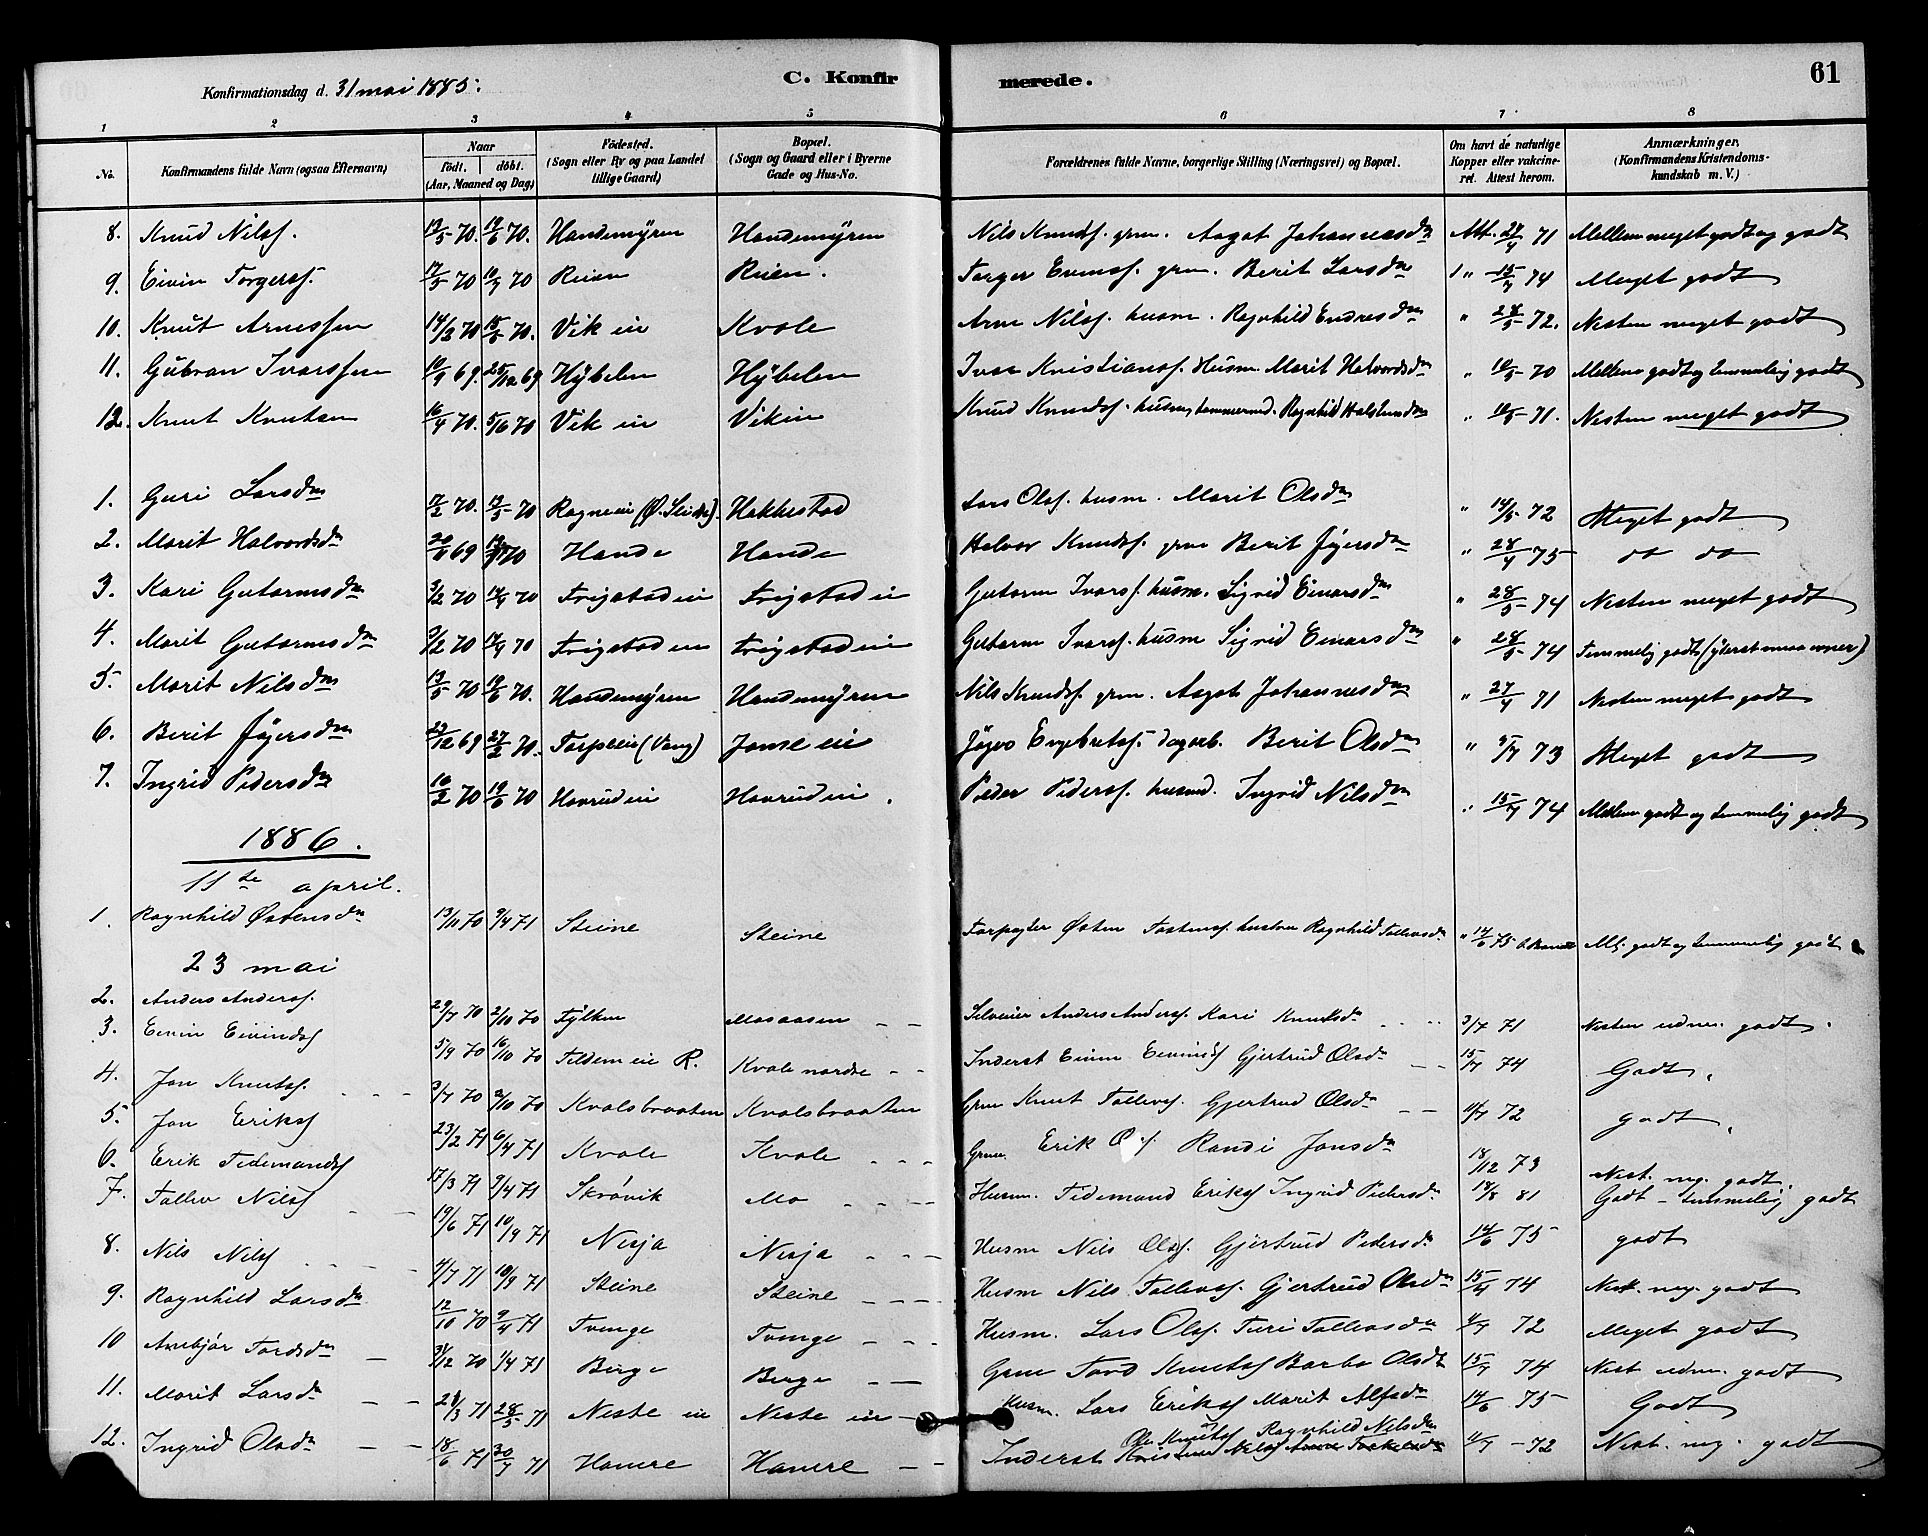 61
Konfirmationsdag d. 31 mai 1885. C. Konfirmerede.
1 2 3 4 5 6 7 8
No. Konfirmandens fulde Navn (ogsaa Efternavn) Naar födt. döbt. (Aar, Maaned og Dag) Födested. (Sogn eller By og paa Landet tillige Gaard) Bopæl. (Sogn og Gaard eller i Byerne Gade og Hus-No. Forældrenes fulde Navne, borgerlige Stilling (Næringsvei) og Bopæl. Om havt de naturlige Kopper eller vakcineret. Attest herom. Anmærkninger. (Konfirmandens Kristendomskundskab m. V.)
8. Knud Nilss. 13/5 70. 19/6 70. Handemÿren Handemÿren Nils Knudss. grm. Aagot Johannesdtr Att. 27/4 71 Mellem meget godt og godt
9. Eivin Torgerss. 17/5 70 10/7 70 Reien Reien. Torger Evinss. grm. Berit Larsdtr 1 " 15/7 74 Meget godt
10. Knut Arnessen 14/2 70 15/5 70. Vik eie Kvale Arne Nilss. husm. Ragnhild Endresdtr " 28/5 72. Nesten meget godt
11. Gulbran Ivarssen 10/9 69. 25/12 69 Hÿbelen Hÿbelen Ivar Kristianss. Husm. Marit Halvordsdtr " 10/5 70 Mellem godt og temmelig godt
12. Knut Knutsen 16/4 70. 5/6 70 Vik eie Vikeie Knud Knudss. husm, tømmermd. Ragnhild Halstensdtr " 10/5 71. Nesten meget godt
1. Guri Larsdtr 17/2 70. 13/5 70 Ragneeie (Ø. Slidre). Hakkestad Lars Olss. husm. Marit Olsdtr " 14/5 72 Meget godt
2. Marit Halvordsdtr 69 70 Hande Hande Halvor Knudss. grm Berit Jøgersdtr " 28/4 75 do do
3. Kari Gutormsdtr 3/2 70 17/4 70 Frigstad eie Frigstad eie Gutorm Ivarss. husm. Sigrid Einarsdtr " 28/5 74 Nesten meget godt
4. Marit Gutormsdtr 3/2 70 17/4 70 Frigstad eie Frigstad eie Gutorm Ivarss. husm Sigrid Einarsdtr " 28/5 74 Temmelig godt (yderst smaa evner)
5. Marit Nilsdtr 13/5 70 19/6 70. Handemÿren Handemÿren Nils Knudss. grm. Aagot Johannesdtr " 27/4 71 Nesten meget godt
6. Berit Jøgersdtr 29/12 69 27/2 70. Torpeeie (Vang) Jome eie Jøger Engebretss. dagarb. Berit Olsdtr " 5/7 73 Meget godt
7. Ingrid Pedersdtr 10/2 70 19/6 70 Havrudeie Havrudeie. Peder Pederss. husmd. Ingrid Nilsdtr " 15/7 74 Mellem godt og temmelig godt
1886.
11te april.
1. Ragnhild Østensdtr 13/11 70 9/4 71 Steine Steine Østen Tostenss. hustru Ragnhild Tollevsdtr " 14/6 75 Ml. godt og temmelig godt
23 mai
2. Anders Anderss. 29/7 70 2/10 70 Fÿlken Mosaasen Selveier Anders Anderss. Kari Knutsdtr 3/7 71 Nesten udm. godt.
3. Eivin Eivindss 5/9 70 16/10 70 Fildem eie R. Kvale nordre Inderst Eivin Eivindss Gjertrud Olsdtr 15/7 74 Godt.
4. Jon Knutss. 3/7 70 2/10 70 Kvalsbraaten Kvalsbraaten Grm Knut Tollevss. Gjertrud Olsdtr 11/7 72 godt.
5. Jon Erikss 23/2 71 6/4 71 Kvale Kvale Grm. Erik O s. Randi Jonsdtr 18/12 73 Nest. mg. godt.
6. Erik Tidemandss 17/3 71 9/4 71 Skrøvik Mo Husm. Tidemand Erikss Ingrid Pedersdtr 18/8 81 Godt - temmelig godt
7. Tollev Nilss 19/6 71 10/9 71 Nesja Nesja Husm Nils Olss. Gjertrud Pedersdtr 14/6 75 godt
8. Nils Nilss 4/7 71 10/9 71 Steine Steine Husm Nils Tollevss. Gjertrud Olsdtr 15/7 74 Nest. meg. godt
9. Ragnhild Larsdtr 12/10 70 9/4 71 Tvenge Tvenge Husm. Lars Olss. Turi Tollevsdtr 11/7 72 Meget godt
10 Anebjør Tordsdtr 31/12 70 1/4 71 Berge Berge Grm Tord Knutss Barbo Olsdt 15/7 74 Nest udm. godt
11. Marit Larsdtr 21/3 71 28/5 71 Neste eie Neste eie Husm. Lars Erikss Marit Alfsdtr 14/6 75 Godt
12. Ingrid Olsdtr 18/6 71 30/7 71 Havere Havere Inderst Ole Knutss Ragnhild Nilsdtr 11/7 72 Nest. meg. godt